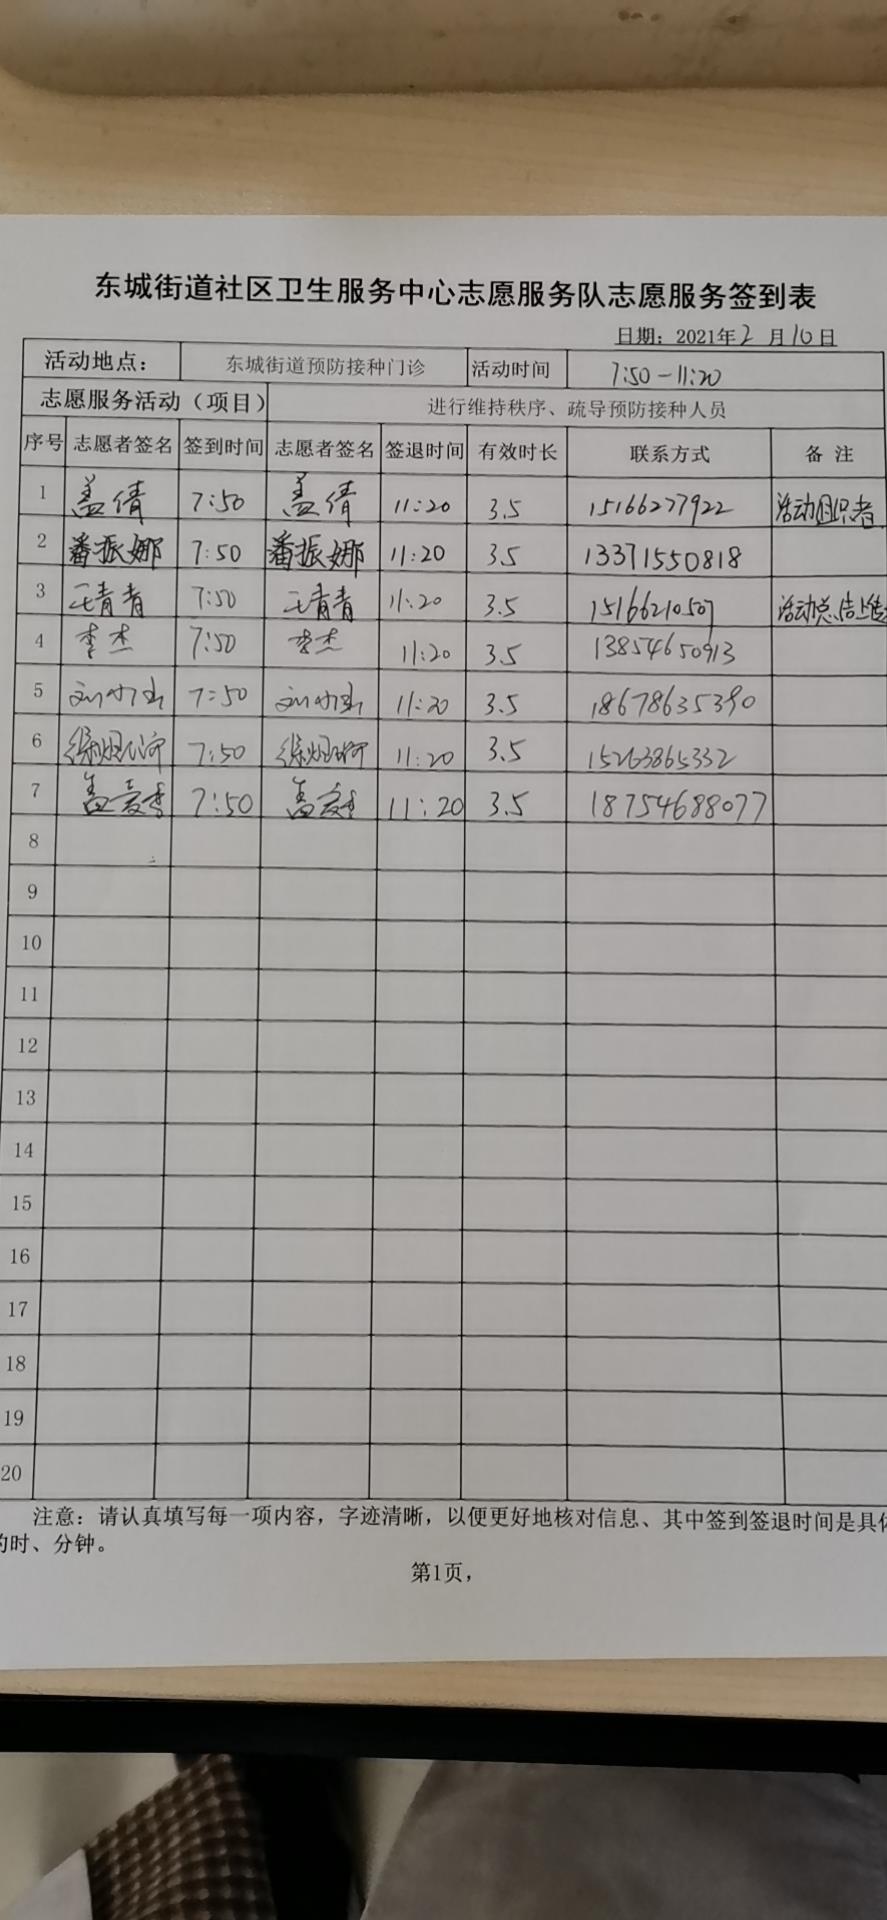 东城街道社区卫生服务中心志愿服务队志愿服务签到表
日期：2021年2月10日
活动地点： 东城街道预防接种门诊 活动时间 7:50-11:20
志愿服务活动（项目） 进行维持秩序、疏导预防接种人员
序号 志愿者签名 签到时间 志愿者签名 签退时间 有效时长 联系方式 备注
1 盖倩 7:50 盖倩 11:20 3.5 15166277922 活动组织者
2 潘振娜 7:50 潘振娜 11:20 3.5 13371550818
3 王青青 7:50 王青青 11:20 3.5 15166210507 活动总结上传
4 李杰 7:50 李杰 11:20 3.5 13854650913
5 7:50 11:20 3.5 18678635390
6 7:50 11:20 3.5 15263865332
7 7:50 11:20 3.5 18754688077
8
9
10
11
12
13
14
15
16
17
18
19
20
注意：请认真填写每一项内容，字迹清晰，以便更好地核对信息、其中签到签退时间是具体
的时、分钟。
第1页，